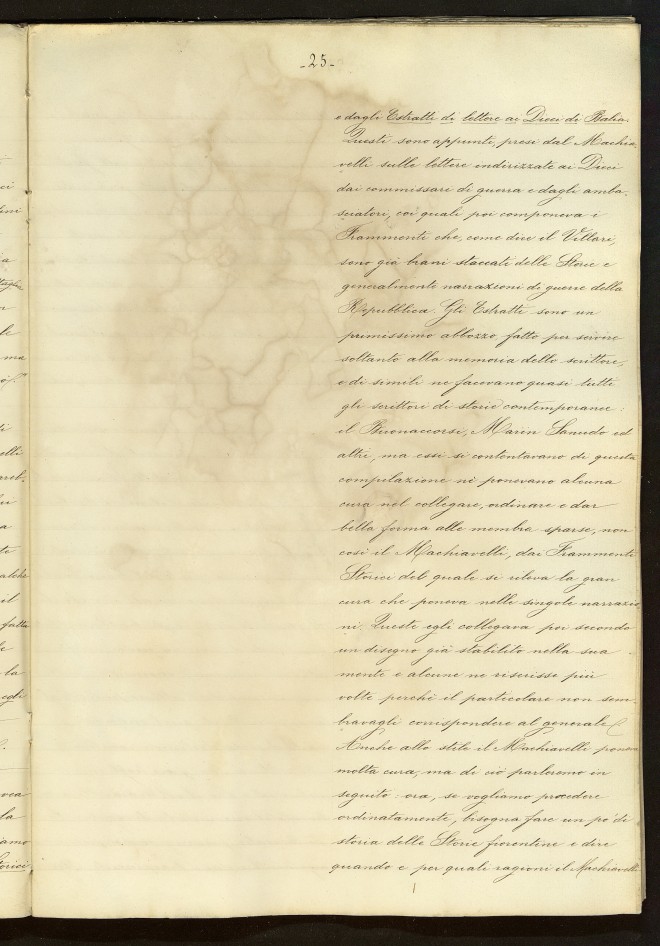 -25-
e dagli Estratti di lettere ai Dieci di Balia.
Questi sono appunti, presi dal Machia-
velli sulle lettere indirizzate ai Dieci
dai commissari di guerra e dagli amba-
sciatori, coi quali poi componeva i
Frammenti che, come dice il Villari,
sono già brani staccati delle Storie e
generalmente narrazioni di guerre della
Repubblica. Gli Estratti sono un
primissimo abbozzo, fatto per servire
soltanto alla memoria dello scrittore,
e di simili ne facevano quasi tutti
gli scrittori di storie contemporanee:
il Buonaccorsi, Marin Sanudo ed
altri, ma essi si contentavano di questa
compilazione nè ponevano alcuna
cura nel collegare, ordinare e dar
bella forma alle membra sparse, non
così il Machiavelli, dai Frammenti
Storici del quale si rileva la gran
cura che poneva nelle singole narrazio
ni. Queste egli collegava poi secondo
un disegno già stabilito nella sua
mente e alcune ne riscrisse più
volte perchè il particolare non sem-
bravagli corrispondere al generale
Anche allo stile il Machiavelli poneva
molta cura, ma di ciò parleremo in
seguito: ora, se vogliamo procedere
ordinatamente, bisogna fare un po' di
storia delle Storie fiorentine e dire
quando e per quali ragioni il Machiavelli
ci
ini
a
n
le
ma
ti
elli
a
te
il
fatta
la
egli
la
iamo